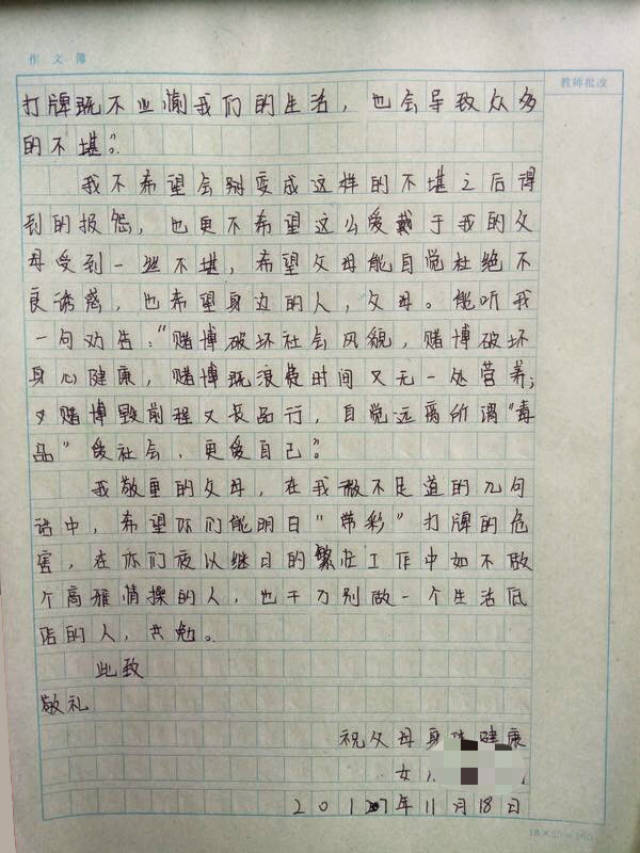 作文簿
教师批改
打牌既不业恼我们的生活，也会导致众多
的不堪”。
我不希望会别变成这样的不堪之后得
到的报怨，也更不希望这么爱戴于我的父
母受到一丝不堪，希望父母能自觉杜绝不
良诱惑，也希望身边的人，父母。能听我
一句劝告：“赌博破坏社会风貌，赌博破坏
身心健康，赌博既浪费时间又无一处营养；
又赌博毁前程又长品行，自觉远离所谓“毒
品”爱社会，更爱自己”。
我敬重的父母，在我微不足道的几句
话中，希望你们能明日“带彩”打牌的危
害，在你们夜以继日的繁忙工作中如不做
个高雅情操的人，也千万别做一个生活低
沽的人，共勉。
此致
敬礼
祝父母身体健康
女
2017年11月18日